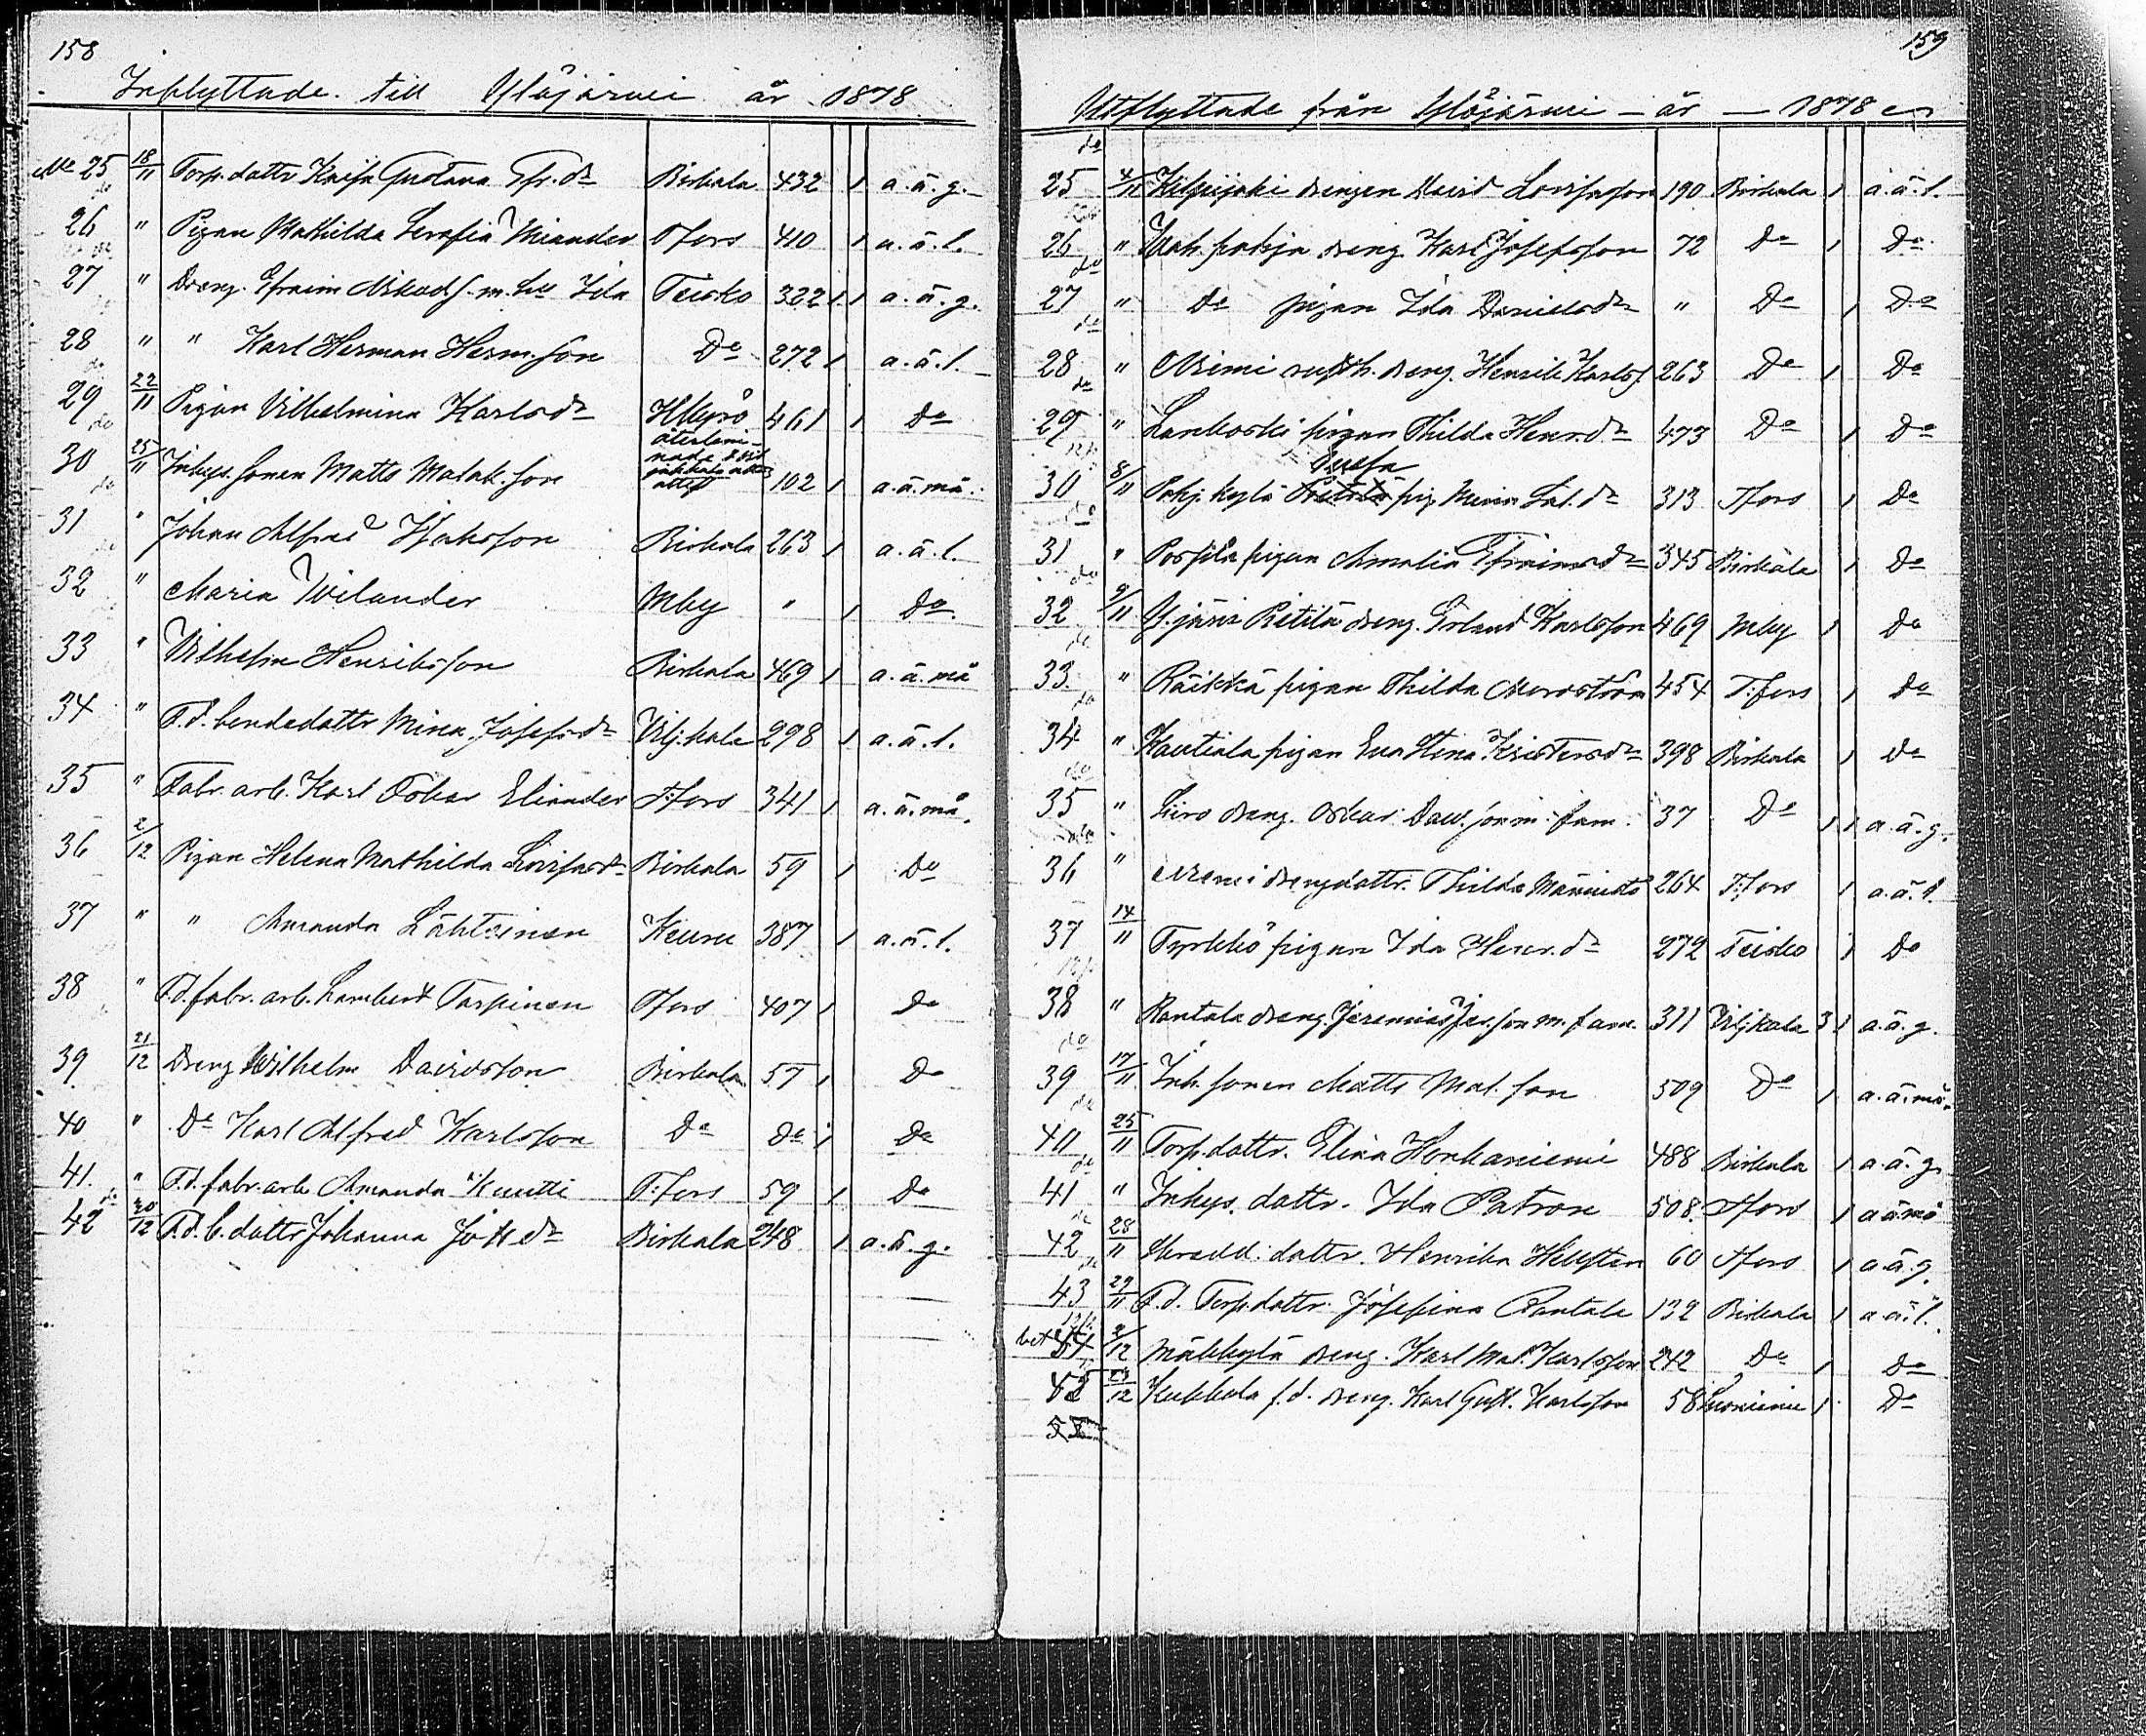 158
Inflyttade till Ylöjärvi år 1878
No 25 18/11 Torp.dottr Kaisa Gustava Efr.dr Birkala 432 1 a.ä.g.
26 " Pigan Mathilda Serafia Miander Tfors 410 1 a.ä.l.
27 " Dreng. Efraim Nikod.s. m. hu Ida Teisko 322 1 1 a.ä.g.
28 " " Karl Herman Herm.son Do 272 1 a.ä.l.
29 22/11 Pigan Vilhelmina Karlsdr HKyro 461 1 Do
30 25/11 Inhys.sonen Matts Matab.son 102 1 a.ä.må.
31 " Johan Alfred Isaksson Birkala 263 1 a.ä.l.
32 " Maria Wilander Mby " 1 Do.
33 " Vilhelm Henriksson Birkala 469 1 a.ä.må
34 " F.d. bondedottr Mina Josefsdr Vilj.kala 298 1 a.ä.l.
35 " Fabr.arb. Karl Oskar Eliander T:fors 341 1 a.ä.må.
36 2/12 Pigan Helena Mathilda Lovisasdr Birkala 59 1 Do
37 " " Amanda Lähteinen Keuru 387 1 a.ä.l.
38 " F.d. fabr.arb. Lambert Tarpinen Tfors 407 1 Do
39 21/12 Dreng Wilhelm Davidsson Birkala 57 1 Do
40 " Do Karl Alfred Karlsson Do Do 1 Do
41. " F.d. fabr.arb Amanda Kuutti T:fors 59 1 Do
42 30/12 F.d. b.dottr Johanna Joh.dr Birkala 248 1 a.ä.g.
159
Utflyttade från Ylöjärvi – år – 1878
25 4/11 Kilpijoki drengen David Lovisason 190 Birkala 1 a.ä.l.
26 " pohja dreng Karl Josefsson 72 Do 1 Do
27 " Do pigan Ida Danielsdr " Do 1 Do
28 " Niemi dreng. Henrik Karls. 263 Do 1 Do
29 " Lamkoski pigan Thilda Henr.dr 473 Do 1 Do
30 8/11 Pohj.kylä pig Mina Sal.dr 313 Tfors 1 Do
31 " Possila pigan Amalia Efraimsdr 345 Birkala 1 Do
32 9/11 Y.järvi Pietilä dreng. Erland Karlsson 469 Mby 1 Do
33 " Räikkä pigan Thilda Nordström 454 T:fors 1 Do
34 " Kautiala pigan Eva Stina Kristersdr 398 Birkala 1 Do
35 " Siiro dreng. Oskar Dav.son m: fam. 37 Do 1 1 a.ä.g.
36 " Niemi drengdottr. Thilda Männistö 264 T:fors 1 a.ä.l.
37 14/11 Tyrkkö pigan Ida Henr.dr 272 Teisko 1 Do
38 " Rantala dreng. Jeremias Jer.son m. fam. 311 Vilj.kala 3 1 a.ä.g.
39 17/11 Inh.sonen Matts Mat.son 509 Do 1 a.ä.må.
40 25/11 Torp.dottr. Elina Honkaniemi 488 Birkala 1 a.ä.g.
41 " Inhys.dottr. Ida Patron 508. Tfors 1 a.ä.må
42 28/11 Skradd.dottr. Henrika Hellsten 60 Tfors 1 a.ä.g.
43 29/11 F.d. Torp.dottr. Josefina Rantala 132 Birkala 1 a.ä.l.
2/12 Mäkkylä dreng. Karl Mat. Karlsson 242 Do 1 Do
23/12 Kukkola f.d. dreng. Karl Gust. Karlsson 58 Suoniemi 1 Do